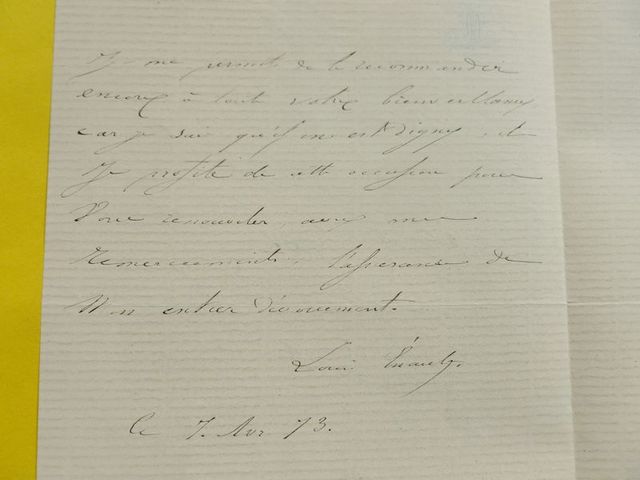 Je me permets de le recommander
encore à toute votre bienveillance
car je sais qu'il en est digne, et
Je profite de cette occasion pour
Vous renouveler, avec mes
remerciements, l'assurance de
Mon entier dévouement.
Louis Énault.
Ce 7. Avr 73.